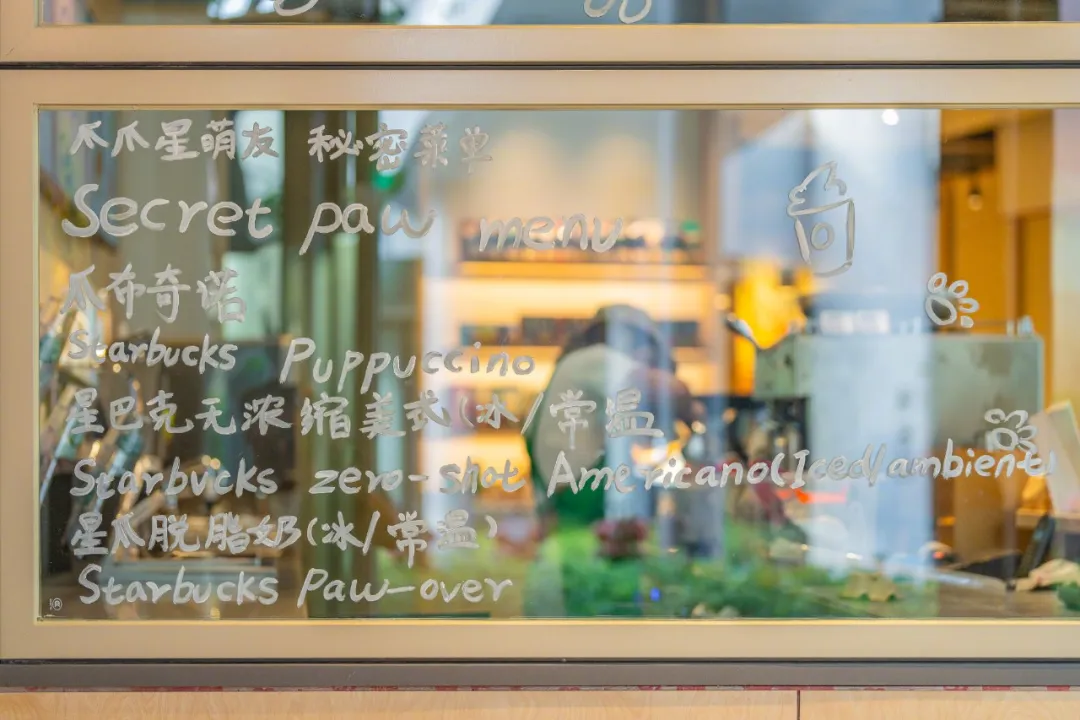 爪爪星萌友 秘密菜单
Secret paw menu
爪布奇诺
Starbucks Puppuccino
星巴克无浓缩美式(冰/常温
Starbucks zero-shot Americano(Iced/ambient
星爪脱脂奶(冰/常温)
Starbucks Paw-over